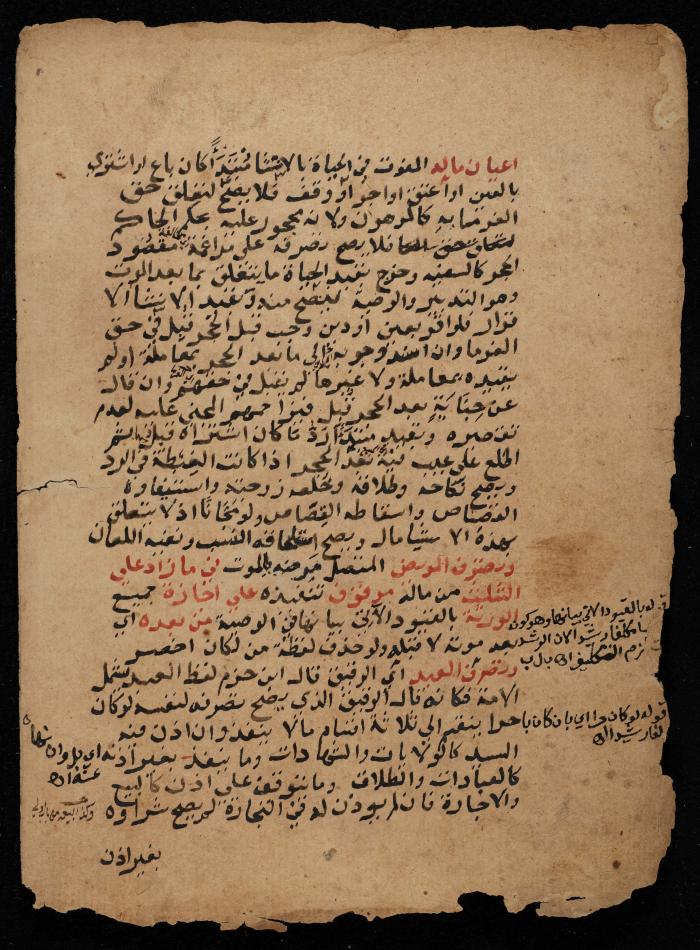 اعيان ماله المفوت في الحياة بالانشا مبتدأ كان باع او اشترى
بالعين او اعتق او اجر او وقف فلا يصح لتعلق حق
الغرما به كالمرهون ولانه محجور عليه بحكم الحاكم
فلا يصح تصرفه على مراغمة مقصود
الحجر كالسفيه وخرج بقيد الحياة ما يتعلق بما بعد الموت
وهو التدبير والوصية فيصح منه وبقيد الانشا الا
قرار فلو اقر بعين او دين وجب قبل الحجر قبل في حق
الغرما وان اسند وجوبه الى ما بعد الحجر بمعاملة او لم
يقيده بمعاملة ولا غيرها لم يقبل في حقهم وان قال
عن جناية بعد الحجر قبل فيزاحمهم المجني عليه لعدم
تقصيره وبقيد مبتدأ رد ما كان اشتراه قبل ثم
اطلع على عيب فيه بعد الحجر اذا كانت الغبطة في الرد
ويصح نكاحه وطلاقه وخلعه زوجته واستيفاوه
القصاص واسقاطه القصاص ولو مجانا اذ لا يتعلق
بهذه الاشيا مال ويصح استلحاقه النسب ونفيه باللعان
وتصرف المريض المتصل مرضه بالموت في ما زاد على
الثلث من ماله موقوف تنفيذه على اجازة جميع
الورثة بالقيود الاتي بيانها في الوصية من بعده اي
بعد موته لا قبله ولو حذف لفظة من لكان اخصر
وتصرف العبد اي الرقيق قال ابن حزم لفظ العبد يشمل
الامة فكانه قال الرقيق الذي يصح تصرفه لنفسه لو كان
حرا ينقسم الى ثلاثة اقسام ما لا ينفذ وان اذن فيه
السيد كالولايات والشهادات وما ينفذ بغير اذنه
كالعبادات والطلاق وما يتوقف على اذن كالبيع
والاجارة فان لم يوذن له في التجارة لم يصح شراوه
بغير اذن
قوله بالقيود الاتي بيانها وهو كون
قوله لو كان حرا اي بان كان با
لغا رشيدا اه
اي بل وان نهاه
عنه اه